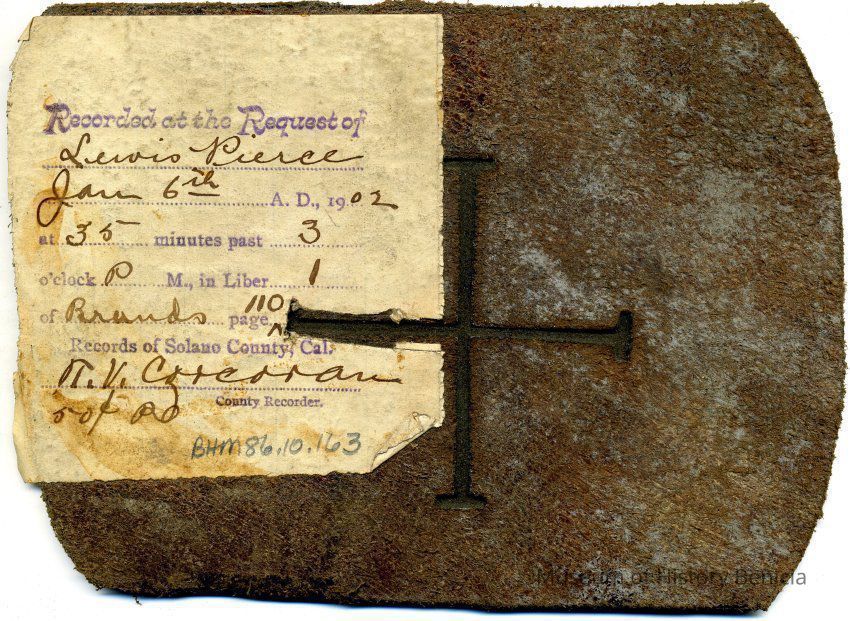 Recorded at the Request of
Lewis Pierce
Jan 6th A. D., 1902
at 35 minutes past 3
o'clock P M., in Liber 1
of Brands page 110
Records of Solano County, Cal.
Corcoran
County Recorder.
BHM86.10.163
Museum of History Benicia